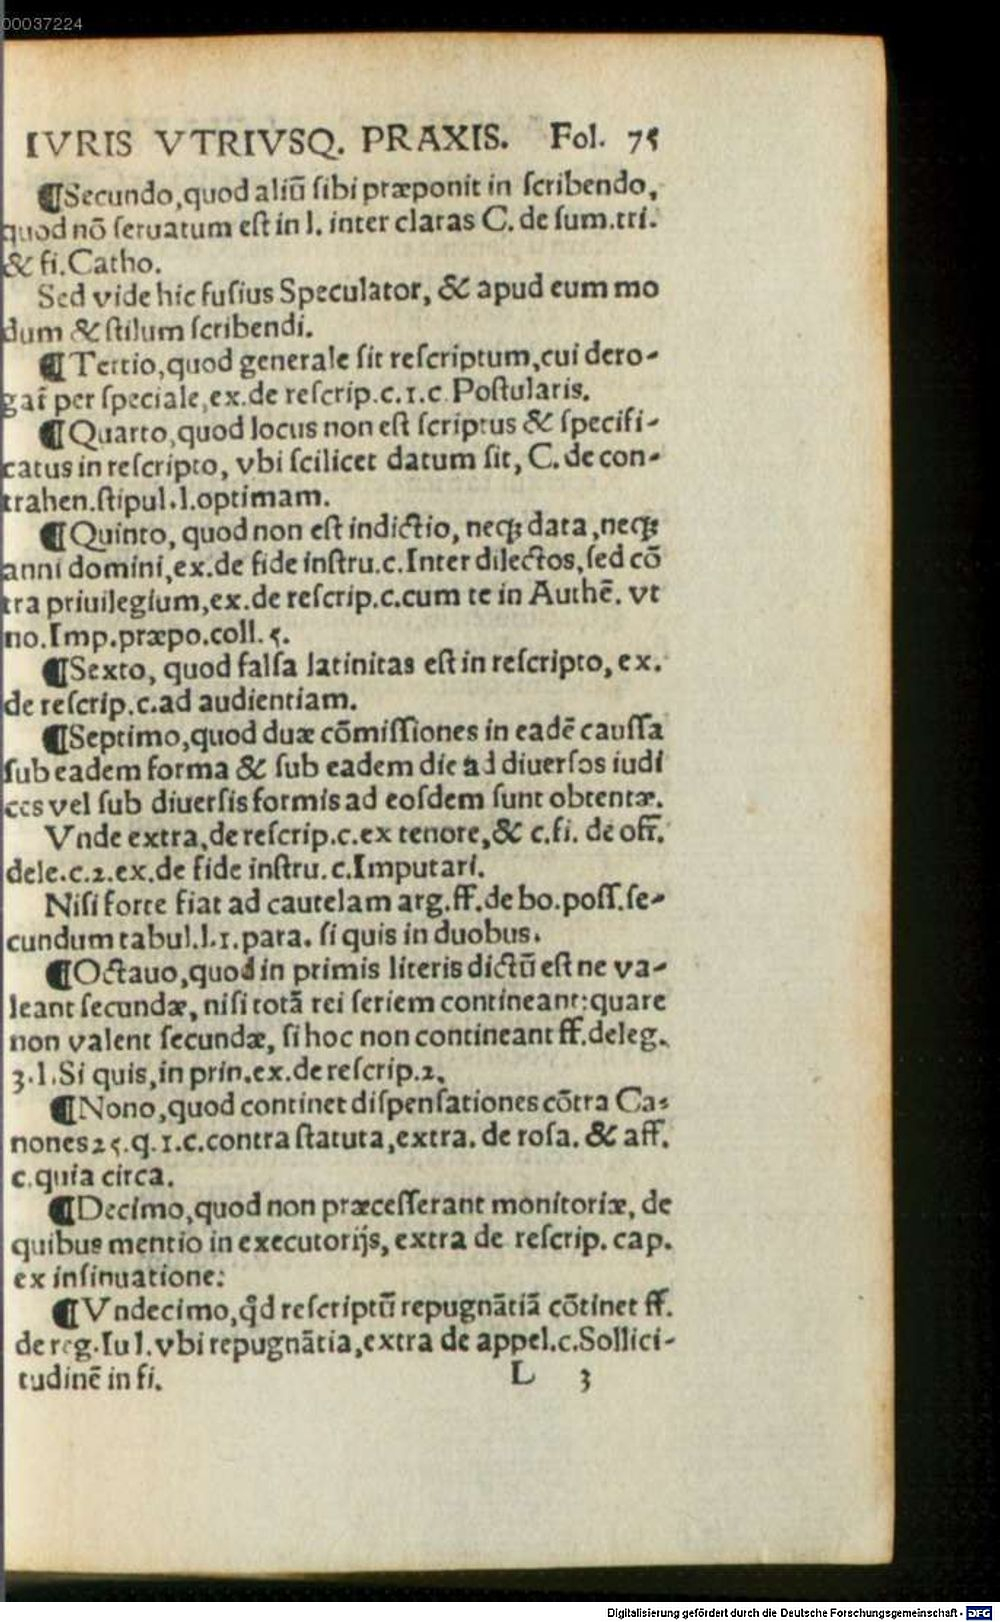 00037224
IVRIS VTRIVSQ. PRAXIS. Fol. 75
¶Secundo,quod aliū ſibi præponit in ſcribendo,
quod nō ſeruatum eſt in l. inter claras C. de ſum.tri.
& fi.Catho.
Sed vide hic fuſius Speculator, & apud eum mo
dum & ſtilum ſcribendi.
¶Tertio,quod generale ſit reſcriptum,cui dero-
gat̄ per ſpeciale,ex.de reſcrip.c.1.c Poſtularis.
¶Quarto,quod locus non eſt ſcriptus & ſpecifi-
catus in reſcripto, vbi ſcilicet datum ſit, C. de con-
trahen.ſtipul.l.optimam.
¶Quinto, quod non eſt indictio, neqꝫ data,neqꝫ
anni domini,ex.de fide inſtru.c.Inter dilectos,ſed cō
tra priuilegium,ex.de reſcrip.c.cum te in Authē. vt
no.Imp.præpo.coll.5.
¶Sexto, quod falſa latinitas eſt in reſcripto, ex.
de reſcrip.c.ad audientiam.
¶Septimo,quod duæ cōmiſſiones in eadē cauſſa
ſub eadem forma & ſub eadem die ad diuerſos iudi
ces vel ſub diuerſis formis ad eoſdem ſunt obtentæ.
Vnde extra,de reſcrip.c.ex tenore,& c.fi. de off̄.
dele.c.2.ex.de fide inſtru.c.Imputari.
Niſi forte fiat ad cautelam arg.ff.de bo.poſſ.ſe-
cundum tabul.l.1.para. ſi quis in duobus.
¶Octauo,quod in primis literis dictū eſt ne va-
leant ſecundæ, niſi totā rei ſeriem contineant:quare
non valent ſecundæ, ſi hoc non contineant ff.deleg.
3.l.Si quis,in prin.ex.de reſcrip.2.
¶Nono,quod continet diſpenſationes cōtra Ca-
nones 25.q.1.c.contra ſtatuta,extra. de roſa. & aff.
c.quia circa.
¶Decimo,quod non præceſſerant monitoriæ, de
quibus mentio in executorijs, extra de reſcrip. cap.
ex inſinuatione:
¶Vndecimo,qd̄ reſcriptū repugnātiā cōtinet ff.
de reg.Iu l.vbi repugnātia,extra de appel.c.Sollici-
tudinē in fi. L 3
Digitalisierung gefördert durch die Deutsche Forschungsgemeinschaft - DFG